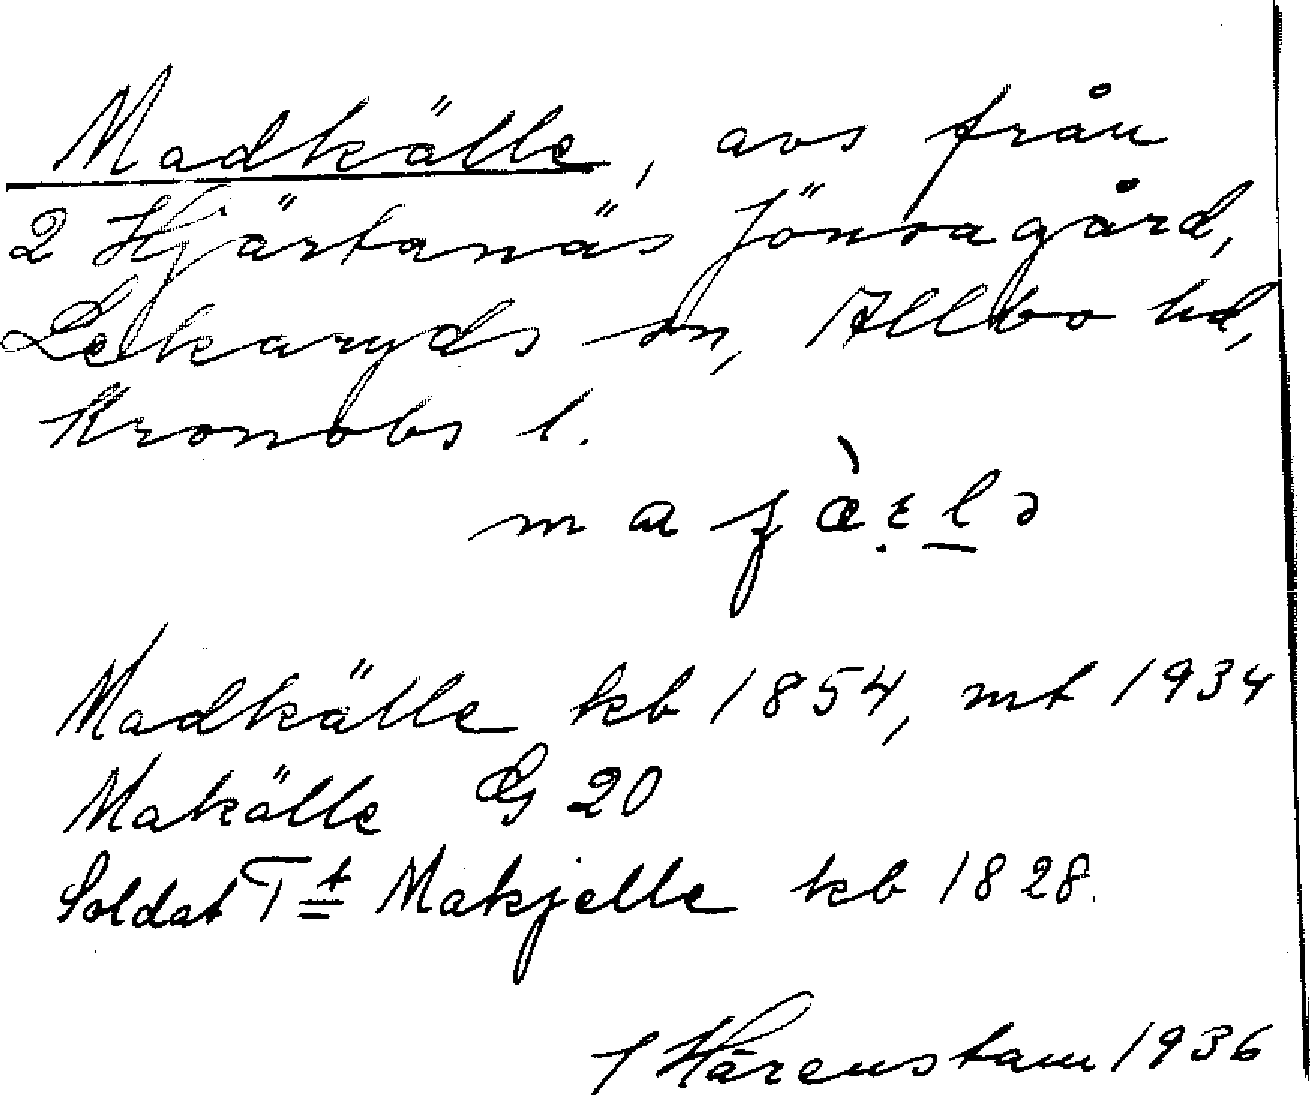 Madkälle, avs från
2 Hjärtanäs Jönsagård,
Lekaryds sn, Allbo hd,
Kronobs l.
Madkälle kb 1854, mt 1934
Makälle GS 20
Soldat T:t Makjelle kb 1828.
Härenstam 1936